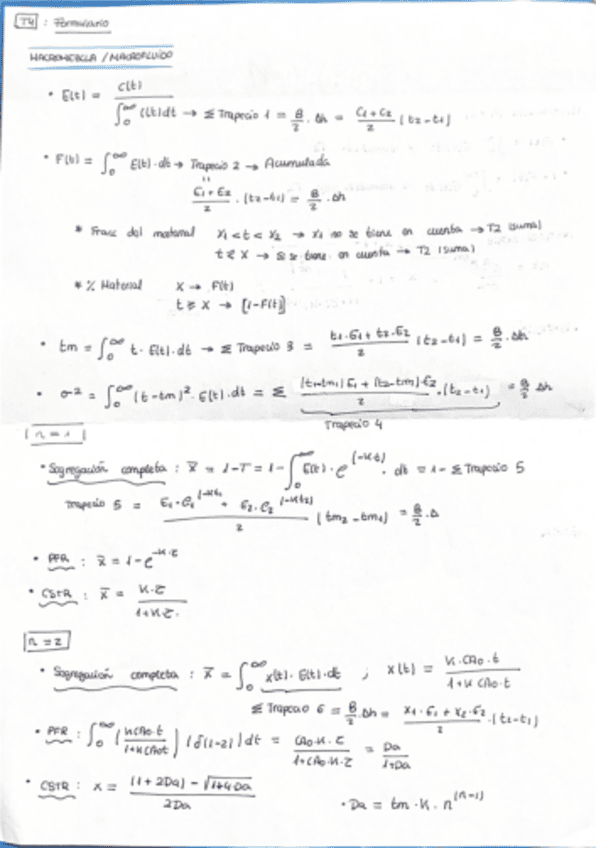 T4 : Formulario
MACROMEZCLA / MACROFLUIDO
• E(t) = C(t) / ∫₀^∞ C(t)dt → Σ Trapecio 1 = B/2 · Δh = (C1+C2)/2 (t2-t1)
• F(t) = ∫₀^∞ E(t)·dt → Trapecio 2 → Acumulada
(E1+E2)/2 · (t2-t1) = B/2 · Δh
* Frac del material x1 < t < x2 → x1 no se tiene en cuenta → T2 (suma)
t ≥ x → Si se tiene en cuenta → T2 (suma)
* % Material x → F(t)
t ≥ x → [1-F(t)]
• tm = ∫₀^∞ t · E(t)·dt → Σ Trapecio 3 = (t1·E1 + t2·E2)/2 (t2-t1) = B/2 · Δh
• σ² = ∫₀^∞ (t-tm)² · E(t)·dt = Σ ((t1-tm)E1 + (t2-tm)·E2)/2 · (t2-t1) = B/2 Δh
Trapecio 4
n=1
• Segregación completa : x̄ = 1-T = 1 - ∫₀^∞ E(t) · e^(-K·t) · dt = 1 - Σ Trapecio 5
Trapecio 5 = (E1·e1^(-Kt1) + E2·e2^(-Kt2))/2 (tm2-tm1) = B/2 · Δ
• PFR : x̄ = 1-e^(-K·τ)
• CSTR : x̄ = K·τ / (1+K·τ)
n=2
• Segregación completa : x̄ = ∫₀^∞ x(t)· E(t)·dt ; x(t) = K·CAo·t / (1+K CAo·t)
Σ Trapecio 6 = B/2 · Δh = (x1·E1 + x2·E2)/2 · (t2-t1)
• PFR : ∫₀^∞ (KCAo·t / (1+KCAot)) (δ(1-2)) dt = CAo·K·τ / (1+CAo·K·τ) = Da / (1+Da)
• CSTR : x = ((1+2Da) - √(1+4Da)) / 2Da
• Da = tm · K · n^(n-1)